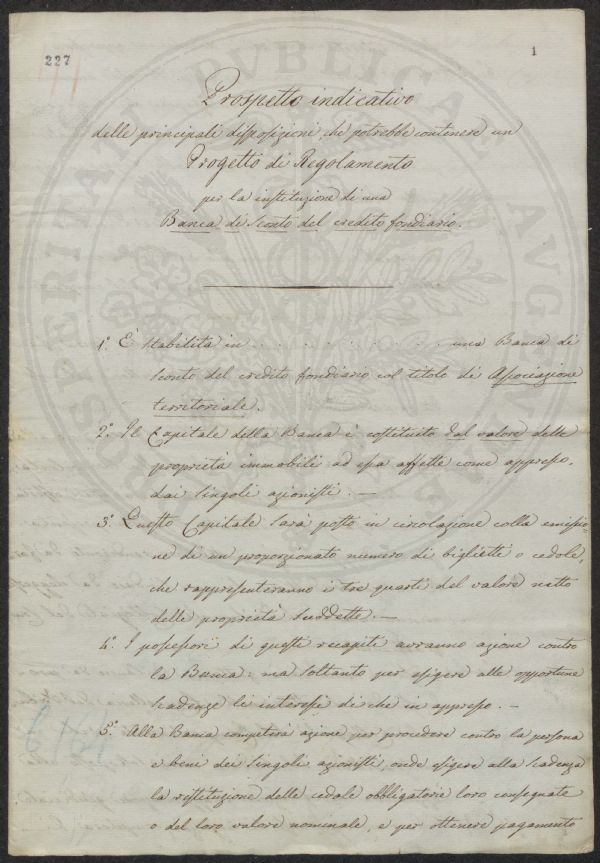 227
1
Prospetto indicativo
delle principali disposizioni, che potrebbe contenere un
Progetto di Regolamento
per la instituzione di una
Banca di Sconto del credito fondiario.
1.° È stabilita in . . . . . . . . . . . . una Banca di
sconto del credito fondiario col titolo di Associazione
territoriale.
2.° Il Capitale della Banca è costituito dal valore delle
proprietà immobili ad essa affette come appresso,
dai singoli azionisti. —
3.° Questo Capitale sarà posto in circolazione colla emissio-
ne di un proporzionato numero di biglietti o cedole,
che rappresenteranno i tre quarti del valore netto
delle proprietà suddette. —
4.° I possessori di questi recapiti avranno azione contro
la Banca: ma soltanto per esigere alle opportune
scadenze li interessi di che in appresso. —
5.° Alla Banca competerà azione per procedere contro la persona
e beni dei singoli azionisti, onde esigere alla scadenza
la ristituzione delle cedole obbligatorie loro consegnate
o del loro valore nominale, e per ottenere pagamento
PUBLICAE
AUGENDAE